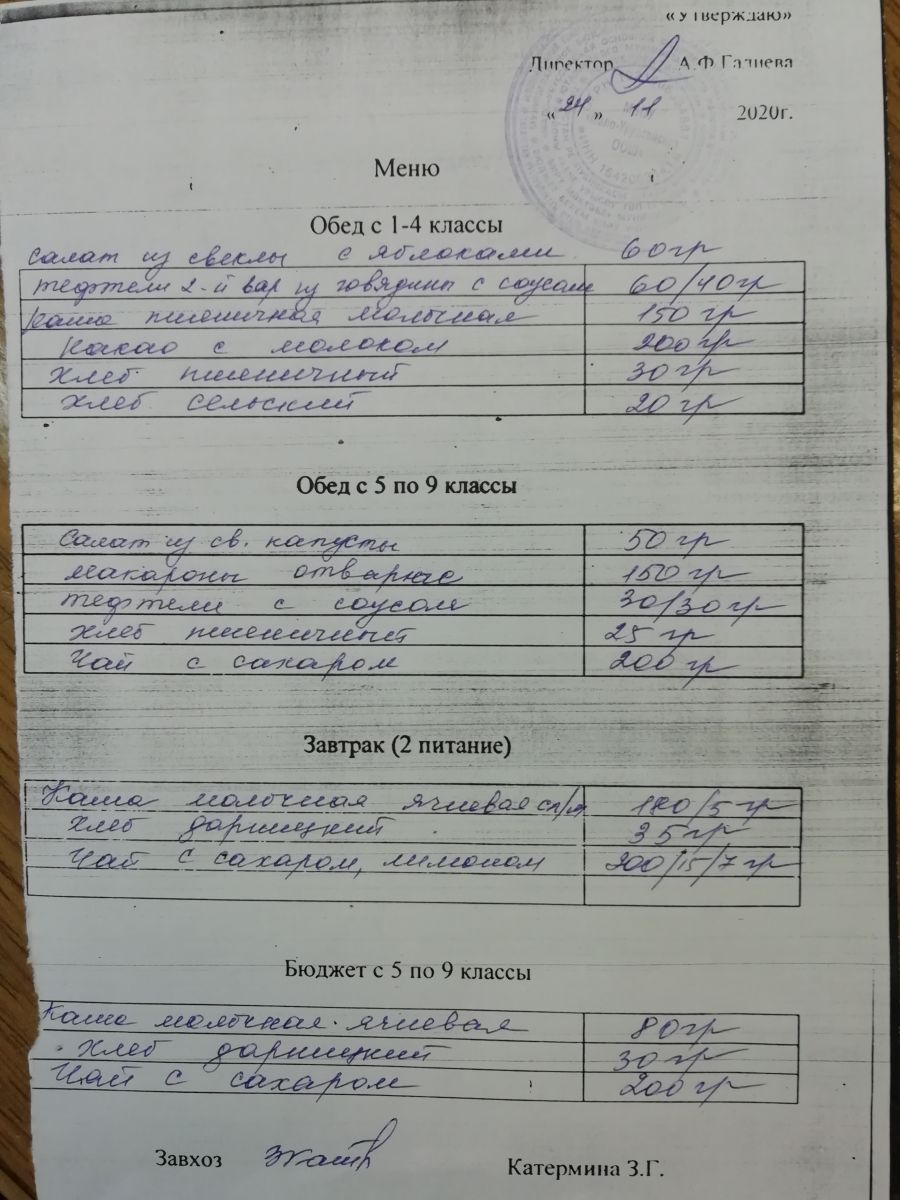 «Утверждаю»
Директор А.Ф.Галиева
«24» 11 2020г.
Меню
Обед с 1-4 классы
салат из свеклы с яблоками 60гр
тефтели 2-й вар из говядины с соусом 60/40гр
каша пшеничная молочная 150 гр
Какао с молоком 200гр
хлеб пшеничный 30гр
хлеб сельский 20гр
Обед с 5 по 9 классы
Салат из св. капусты 50гр
макароны отварные 150гр
тефтели с соусом 30/30гр
хлеб пшеничный 25гр
Чай с сахаром 200гр
Завтрак (2 питание)
Каша молочная ячневая сл/м 180/5 гр
хлеб дарницкий 35гр
Чай с сахаром, лимоном 200/15/7 гр
Бюджет с 5 по 9 классы
Каша молочная ячневая 80гр
Хлеб дарницкий 30гр
Чай с сахаром 200гр
Завхоз Катермина З.Г.